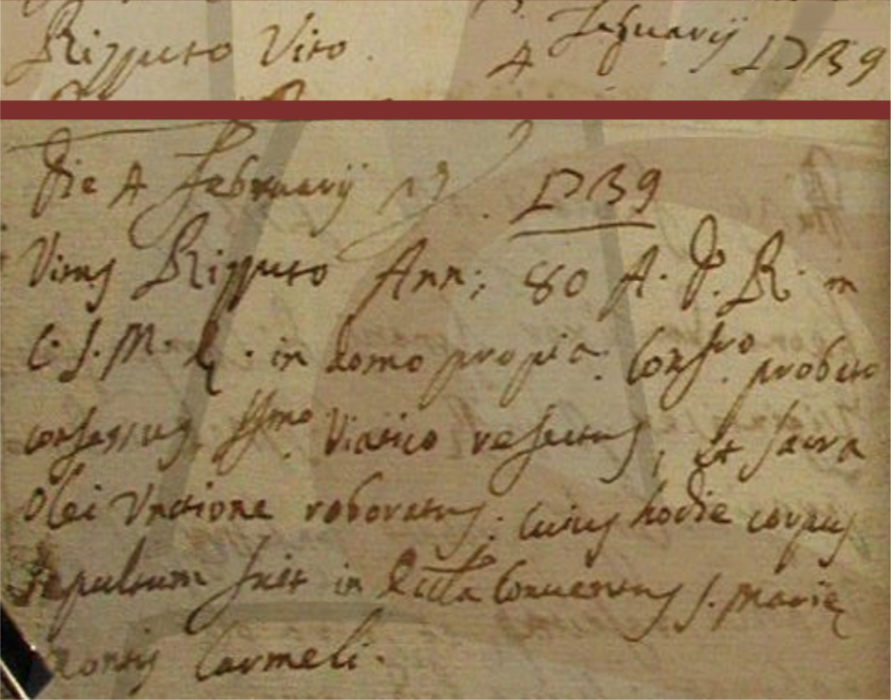 Rippuso Vito. 4 februarij 1739
Die 4 februarij 1739
Vitus Rippuso Ann; 80 A. D. R. in
C. S. M. E. in domo propia. Confro probato
confessus, SSmo Viatico refectus, et sacra
Olei Unctione roboratus; cuius hodie corpus
sepultum fuit in Eccla Conventus S. Marie
Montis Carmeli.